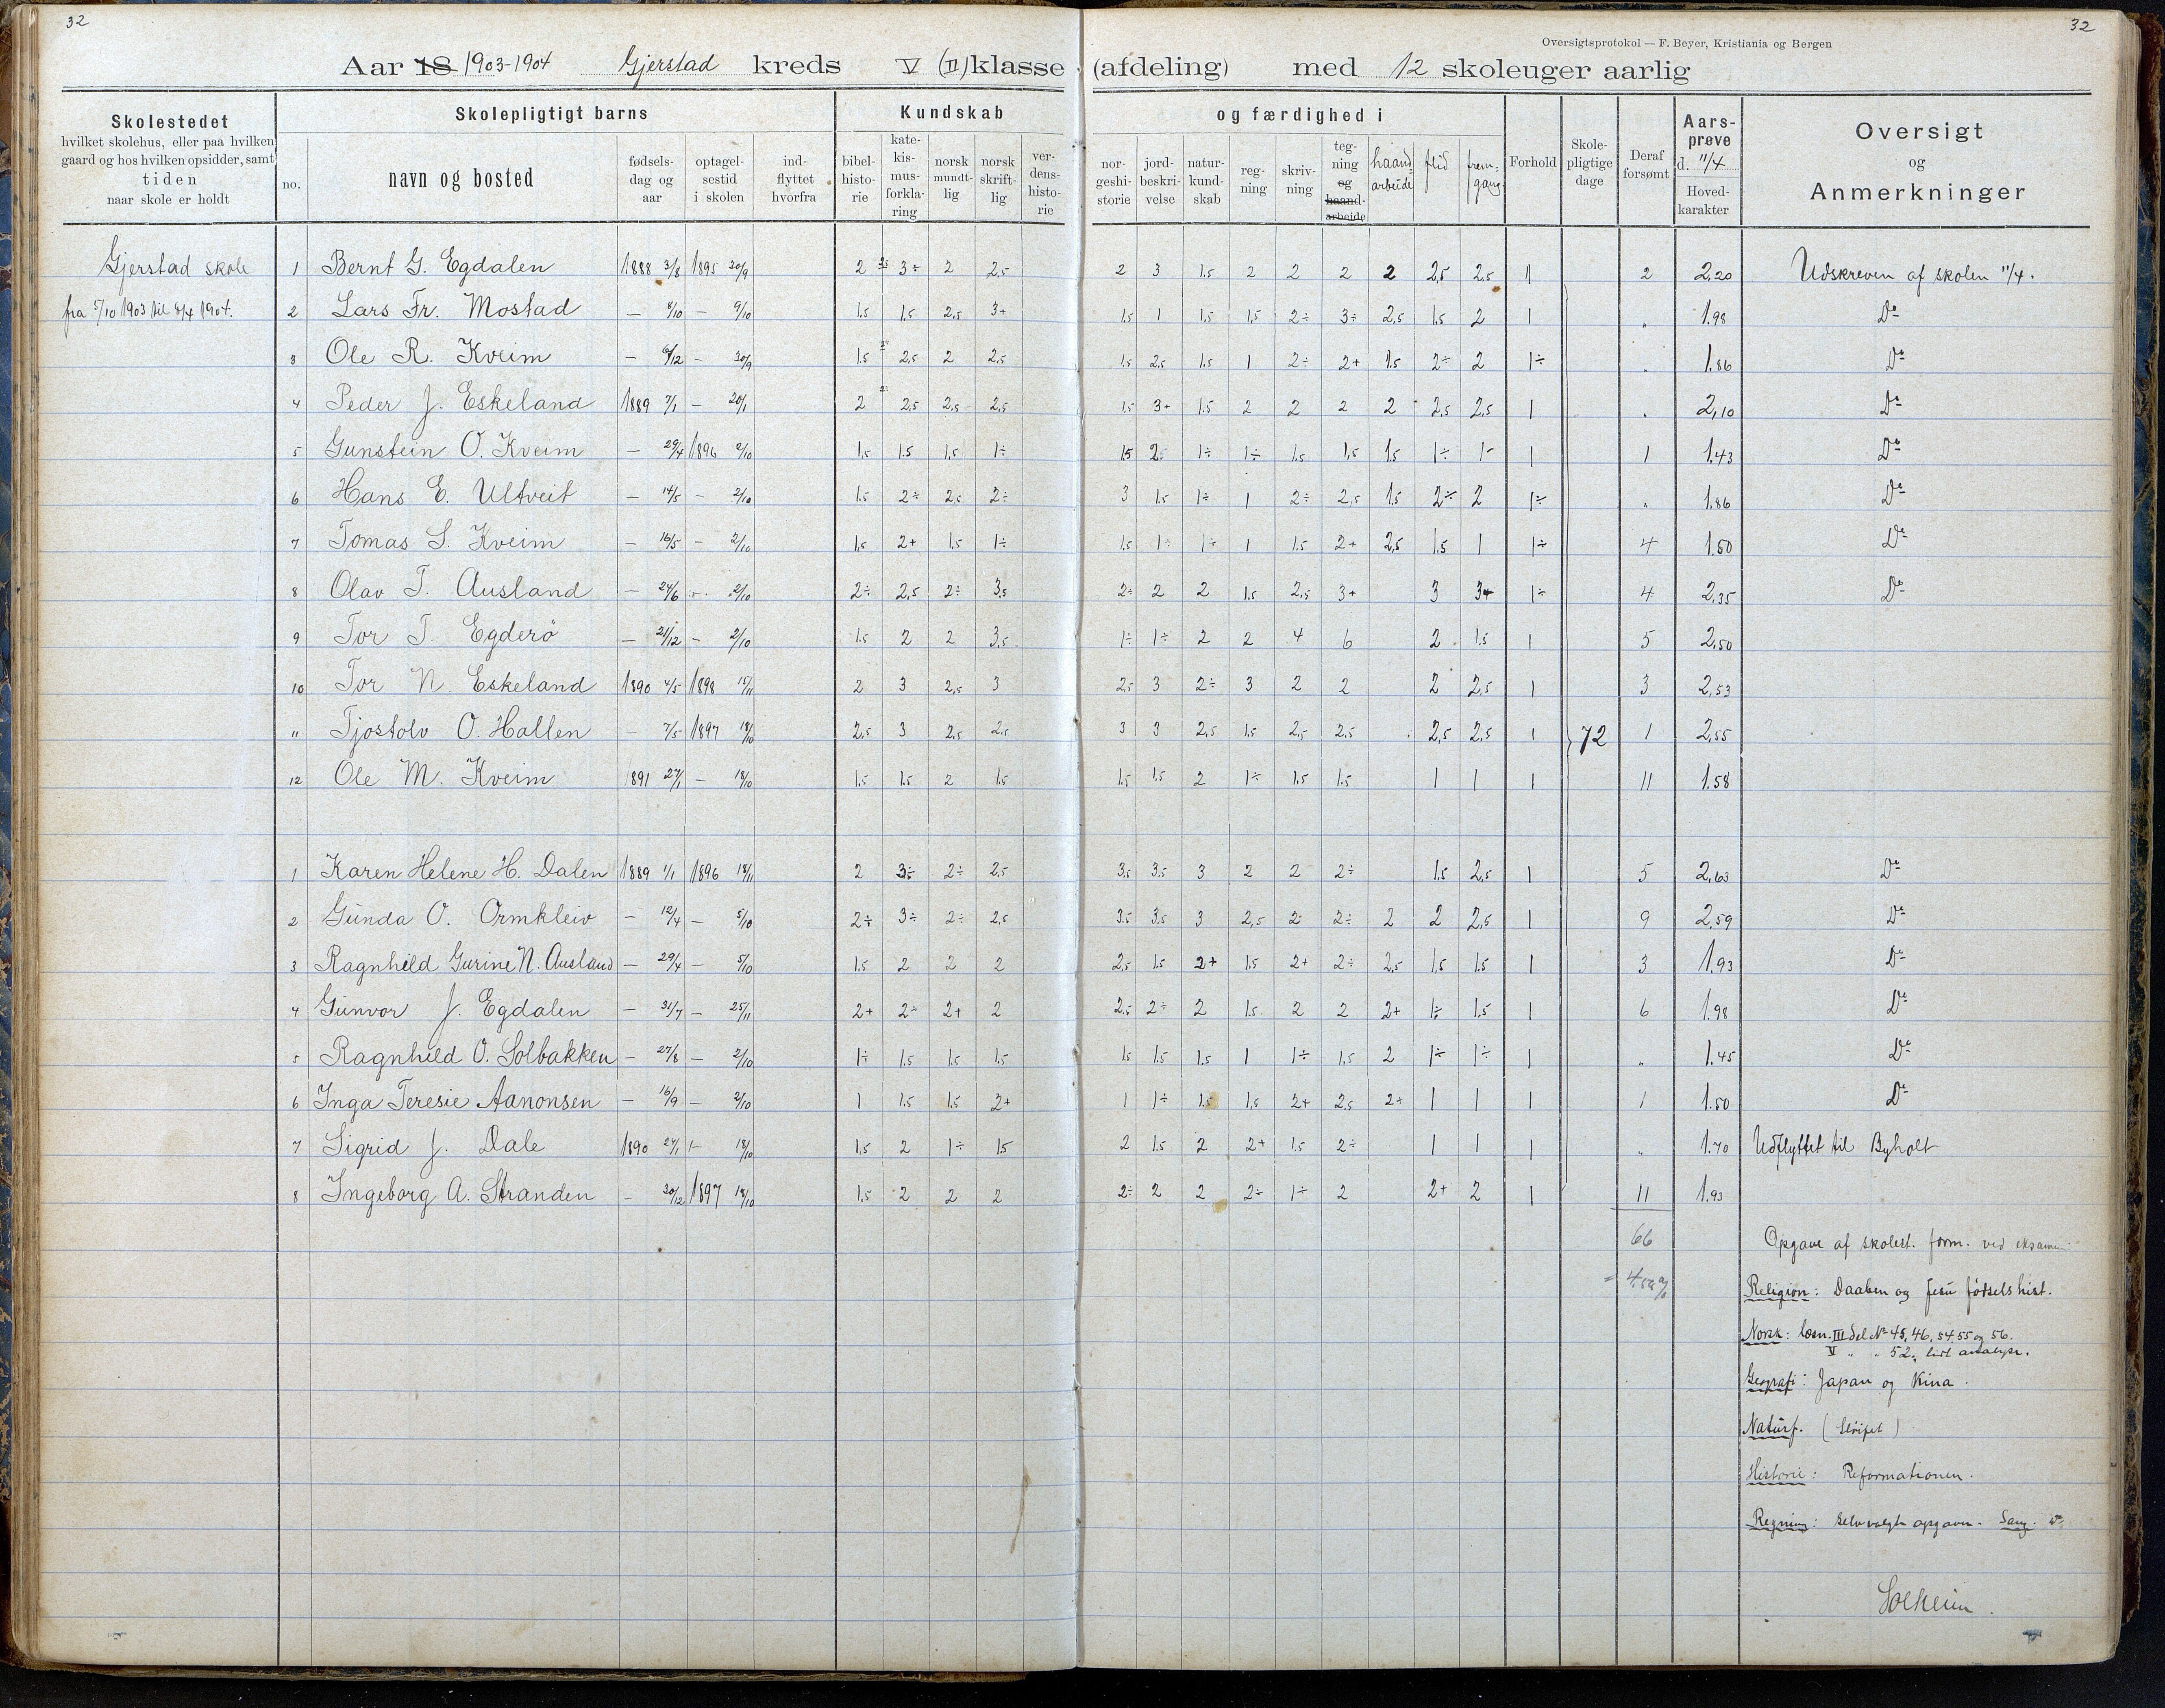 32
32
Oversigtsprotokol — F. Beyer, Kristiania og Bergen
Aar 18 1903-1904 Gjerstad kreds V (II) klasse (afdeling) med 12 skoleuger aarlig
Skolestedet
hvilket skolehus, eller paa hvilken
gaard og hos hvilken opsidder, samt
tiden
naar skole er holdt
Skolepligtigt barns
no.
navn og bosted
fødsels-
dag og
aar
optagel-
sestid
i skolen
ind-
flyttet
hvorfra
Kundskab
bibel-
histo-
rie
kate-
kis-
mus-
forkla-
ring
norsk
mundt-
lig
norsk
skrift-
lig
ver-
dens-
histo-
rie
og færdighed i
nor-
geshi-
storie
jord-
beskri-
velse
natur-
kund-
skab
reg-
ning
skriv-
ning
teg-
ning
og
haand-
arbeide
haand
arbeide
flid
frem-
gang
Forhold
Skole-
pligtige
dage
Deraf
forsømt
Aars-
prøve
d. 11/4
Hoved-
karakter
Oversigt
og
Anmerkninger
Gjerstad skole
fra 5/10 1903 til 8/4 1904.
1 Bernt G. Egdalen 1888 3/8 1895 30/9 2 2.5 3÷ 2 2.5 2 3 1.5 2 2 2 2 2,5 2.5 1 2 2,20 Udskreven af skolen 11/4.
2 Lars Fr. Mostad — 8/10 — 9/10 1.5 1.5 2.5 3+ 1.5 1 1.5 1,5 2÷ 3÷ 2,5 1.5 2 1 „ 1.98 Do
3 Ole R. Kveim — 6/12 — 30/9 1.5 2,5 2 2.5 1.5 2.5 1.5 1 2÷ 2+ 1.5 2÷ 2 1÷ „ 1.86 Do
4 Peder J. Eskeland 1889 7/1 — 20/1 2 2,5 2,5 2,5 1.5 3+ 1.5 2 2 2 2 2,5 2,5 1 „ 2,10 Do
5 Gunstein O. Kveim — 29/4 1896 2/10 1,5 1.5 1,5 1÷ 15 2÷ 1÷ 1÷ 1.5 1,5 1.5 1÷ 1- 1 1 1.43 Do
6 Hans E. Ultveit — 14/5 — 2/10 1.5 2÷ 2,5 2÷ 3 1.5 1÷ 1 2÷ 2,5 1.5 2÷ 2 1÷ „ 1,86 Do
7 Tomas S. Kveim — 16/5 — 2/10 1,5 2+ 1.5 1÷ 1.5 1÷ 1÷ 1 1.5 2+ 2,5 1.5 1 1÷ 4 1.50 Do
8 Olav T. Ausland — 24/6 — 2/10 2÷ 2,5 2÷ 3,5 2÷ 2 2 1.5 2,5 3+ 3 3+ 1÷ 4 2,35 Do
9 Tor T Egderö — 21/12 — 2/10 1.5 2 2 3,5 1÷ 1÷ 2 2 4 6 2 1.5 1 5 2,50
10 Tor N Eskeland 1890 4/5 1898 15/11 2 3 2,5 3 2,5 3 2÷ 3 2 2 2 2,5 1 3 2,53
„ Tjostolv O. Hallen — 7/5 1897 18/10 2,5 3 2,5 2.5 3 3 2,5 1.5 2,5 2,5 2,5 2,5 1 72 1 2,55
12 Ole M. Kveim 1891 27/1 — 18/10 1.5 1.5 2 1.5 1.5 1.5 2 1÷ 1.5 1.5 1 1 1 11 1.58
1 Karen Helene H. Dalen 1889 1/1 1896 18/11 2 3÷ 2÷ 2,5 3,5 3,5 3 2 2 2÷ 1.5 2,5 1 5 2,63 Do
2 Gunda O. Ormkleiv — 12/4 — 5/10 2÷ 3÷ 2÷ 2,5 3.5 3,5 3 2,5 2 2÷ 2 2 2,5 1 9 2,59 Do
3 Ragnhild Gurine N. Ausland — 29/4 — 5/10 1.5 2 2 2 2,5 1.5 2+ 1.5 2+ 2÷ 2,5 1,5 1.5 1 3 1,93 Do
4 Gunvor J. Egdalen — 31/7 — 25/11 2+ 2÷ 2+ 2 2.5 2÷ 2 1.5 2 2 2+ 1÷ 1.5 1 6 1.98 Do
5 Ragnhild O. Solbakken — 27/8 — 2/10 1÷ 1.5 1.5 1.5 1.5 1.5 1.5 1 1÷ 1,5 2 1÷ 1÷ 1 „ 1.45 Do
6 Inga Teresie Aanonsen — 16/9 — 2/10 1 1.5 1.5 2+ 1 1÷ 1.5 1,5 2+ 2.5 2+ 1 1 1 1 1.50 Do
7 Sigrid J. Dale 1890 27/1 — 18/10 1,5 2 1÷ 15 2 1.5 2 2+ 1.5 2÷ 1 1 1 „ 1.70 Udflyttet til Byholt
8 Ingeborg A. Stranden — 30/12 1897 18/10 1.5 2 2 2 2÷ 2 2 2÷ 1÷ 2 2+ 2 1 11 1.93
66
Opgave af skolest. form. ved eksamen
Religion: Daaben og Jesu fødselshist.
Norsk: læsn. III del No 45, 46, 54, 55 og 56.
V „ „ 52, lidt analyse.
Geografi: Japan og Kina.
Naturf. (Sløifet)
Historie: Reformationen.
Regning: Selvvalgte opgaver. Sang. Do
Solheim.